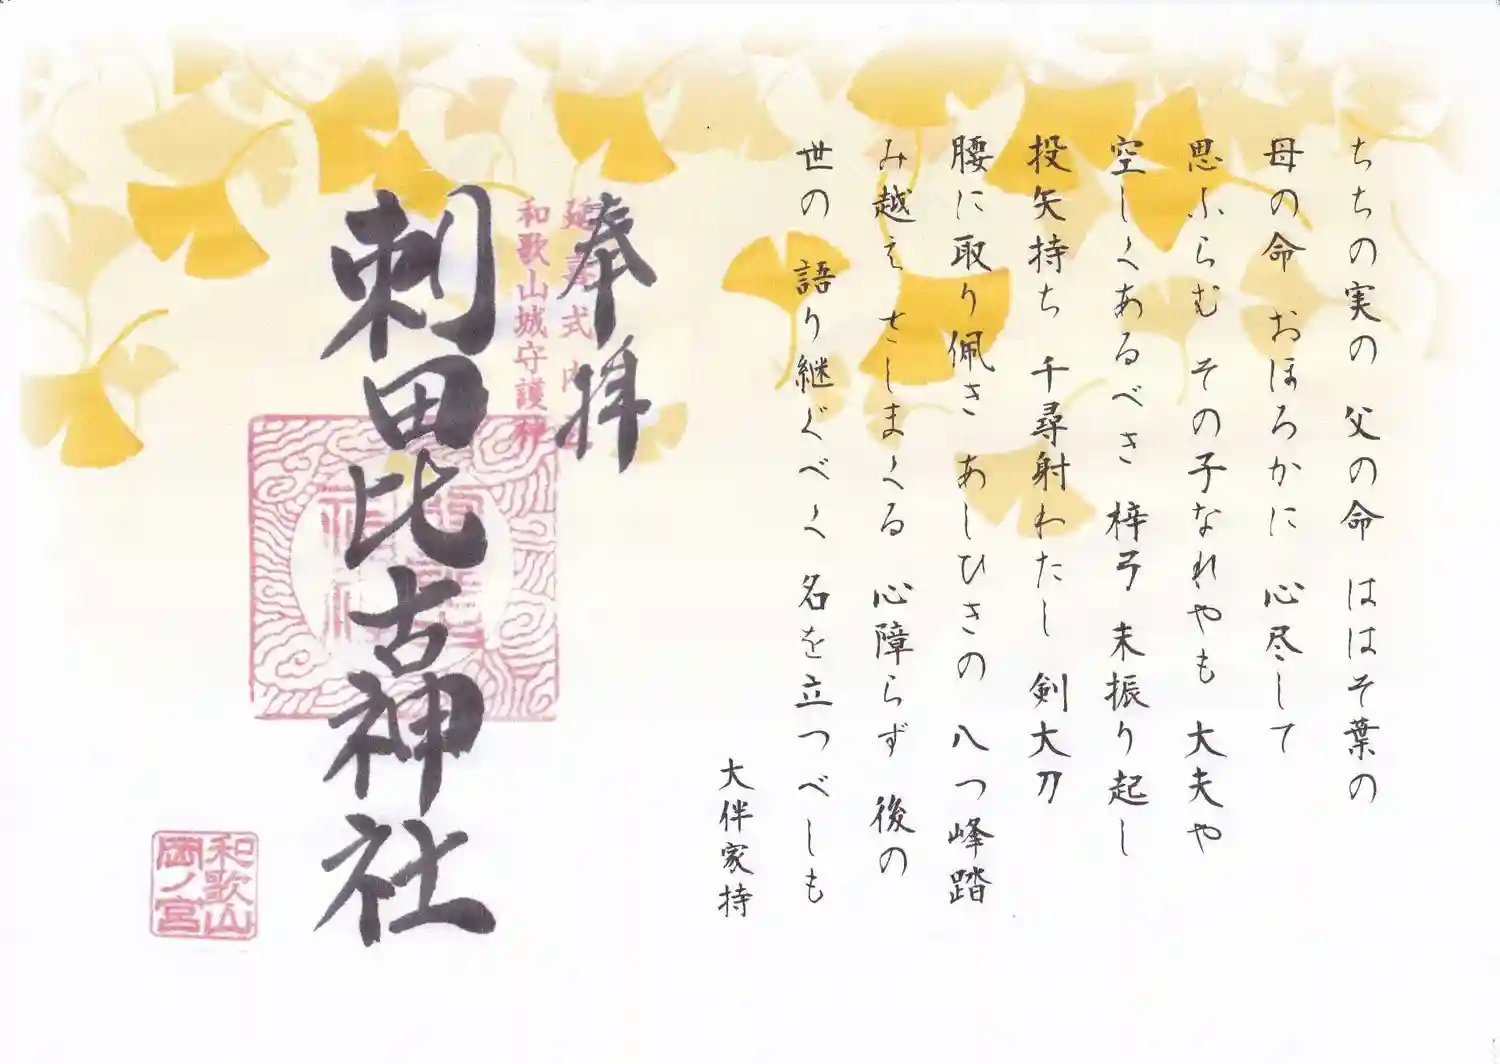 ちちの実の 父の命 ははそ葉の
母の命 おほろかに 心尽して
思ふらむ その子なれやも 大夫や
空しくあるべき 梓弓 末振り起し
投矢持ち 千尋射わたし 剣大刀
腰に取り佩き あしひきの 八つ峰踏
み越え さしまくる 心障らず 後の
世の 語り継ぐべく 名を立つべしも
大伴家持
奉拝
延喜式内
和歌山城守護神
刺田比古神社
和歌山
岡ノ宮